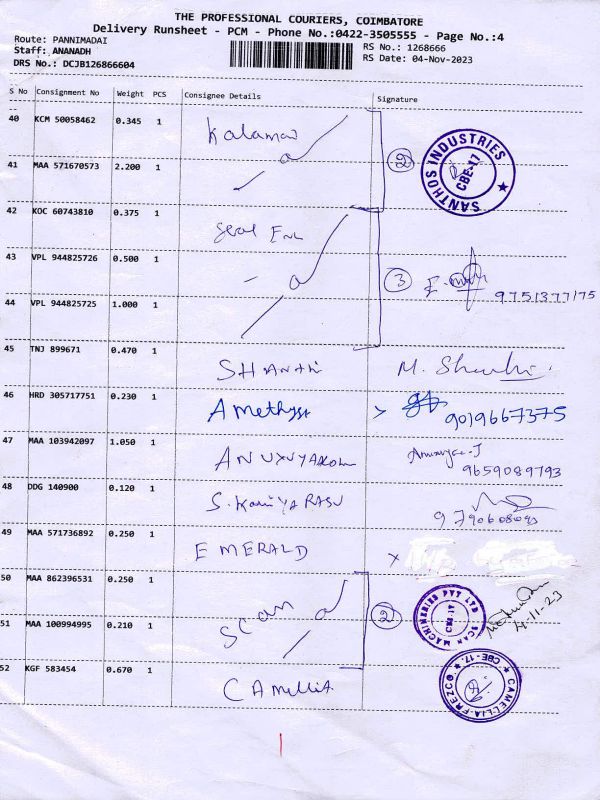 THE PROFESSIONAL COURIERS, COIMBATORE
Delivery Runsheet - PCM - Phone No.:0422-3505555 - Page No.:4
Route: PANNIMADAI
Staff: ANANADH
DRS No.: DCJB126866604
RS No.: 1268666
RS Date: 04-Nov-2023
S No Consignment No Weight PCS Consignee Details Signature
40 KCM 50058462 0.345 1
SANTHOS INDUSTRIES ★ CBE-17
41 MAA 571670573 2.200 1 2
42 KOC 60743810 0.375 1
43 VPL 944825726 0.500 1 3 9751377175
44 VPL 944825725 1.000 1
45 TNJ 899671 0.470 1 SHANTHI M. Shanthi
46 HRD 305717751 0.230 1 Amethyst 9019667375
47 MAA 103942097 1.050 1 9659089793
48 DDG 140900 0.120 1
49 MAA 571736892 0.250 1 EMERALD x
50 MAA 862396531 0.250 1 Scan 2
SCAN MACHINERIES PVT LTD CBE-17
4-11-23
51 MAA 100994995 0.210 1
52 KGF 583454 0.670 1 CAMELLIA
CAMELLIA-FREZCO ★ CBE-17. ★